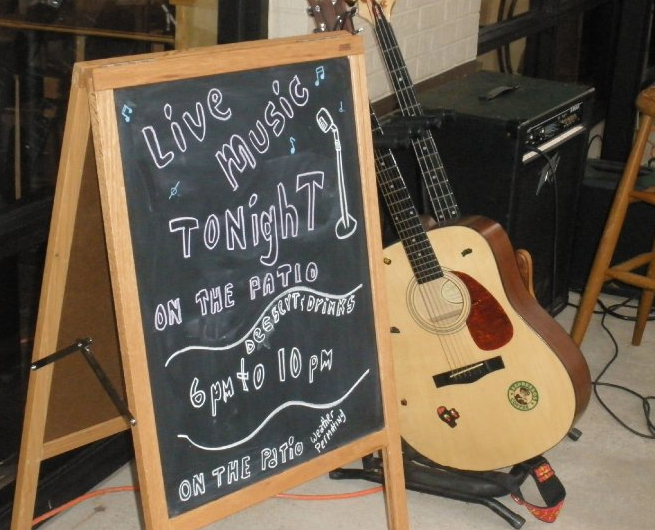 Live
Music
TONighT
ON THE PATIO
DESSERT & DRINKS
6pm to 10 pm
ON THE PATIO
weather
PERMITTING